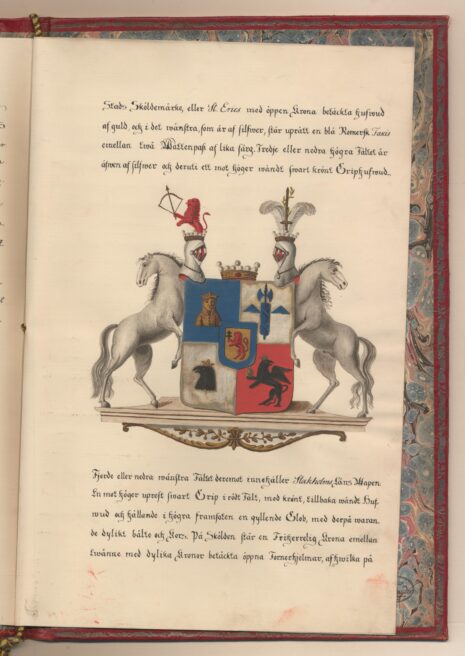 Stads Sköldemärke, eller St. Erics med öppen Krona betäckta hufwud
af guld, och i det wänstra, som är af silfwer, står uprätt en blå Romersk
emellan twå Wattenpaß af lika färg. Tredje eller nedra högra Fältet är
äfwen af silfwer och deruti ett mot höger wändt swart krönt Griphufwud.
Fjerde eller nedra wänstra Fältet deremot innehåller Stockholms Läns Wapen
En mot höger uprest swart Grip i rödt Fält, med krönt, tillbaka wändt Huf-
wud och hållande i högra framfoten en gyllende Glob, med derpå waran-
de dylikt bälte och Kors. På Skölden står en Friherrelig Krona emellan
twänne med dylika Kronor betäckta öpna Tornerhjelmar, af hwilka på